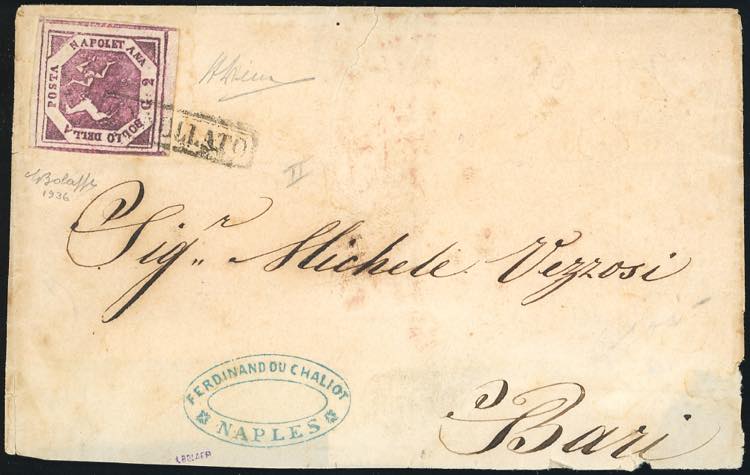 POSTA NAPOLETANA
BOLLO DELLA
G 2
LLATO
ABolaffi
1936
II
Sig.r Michele Vezzosi
FERDINAND DU CHALIOT
NAPLES
Bari
A.BOLAFFI